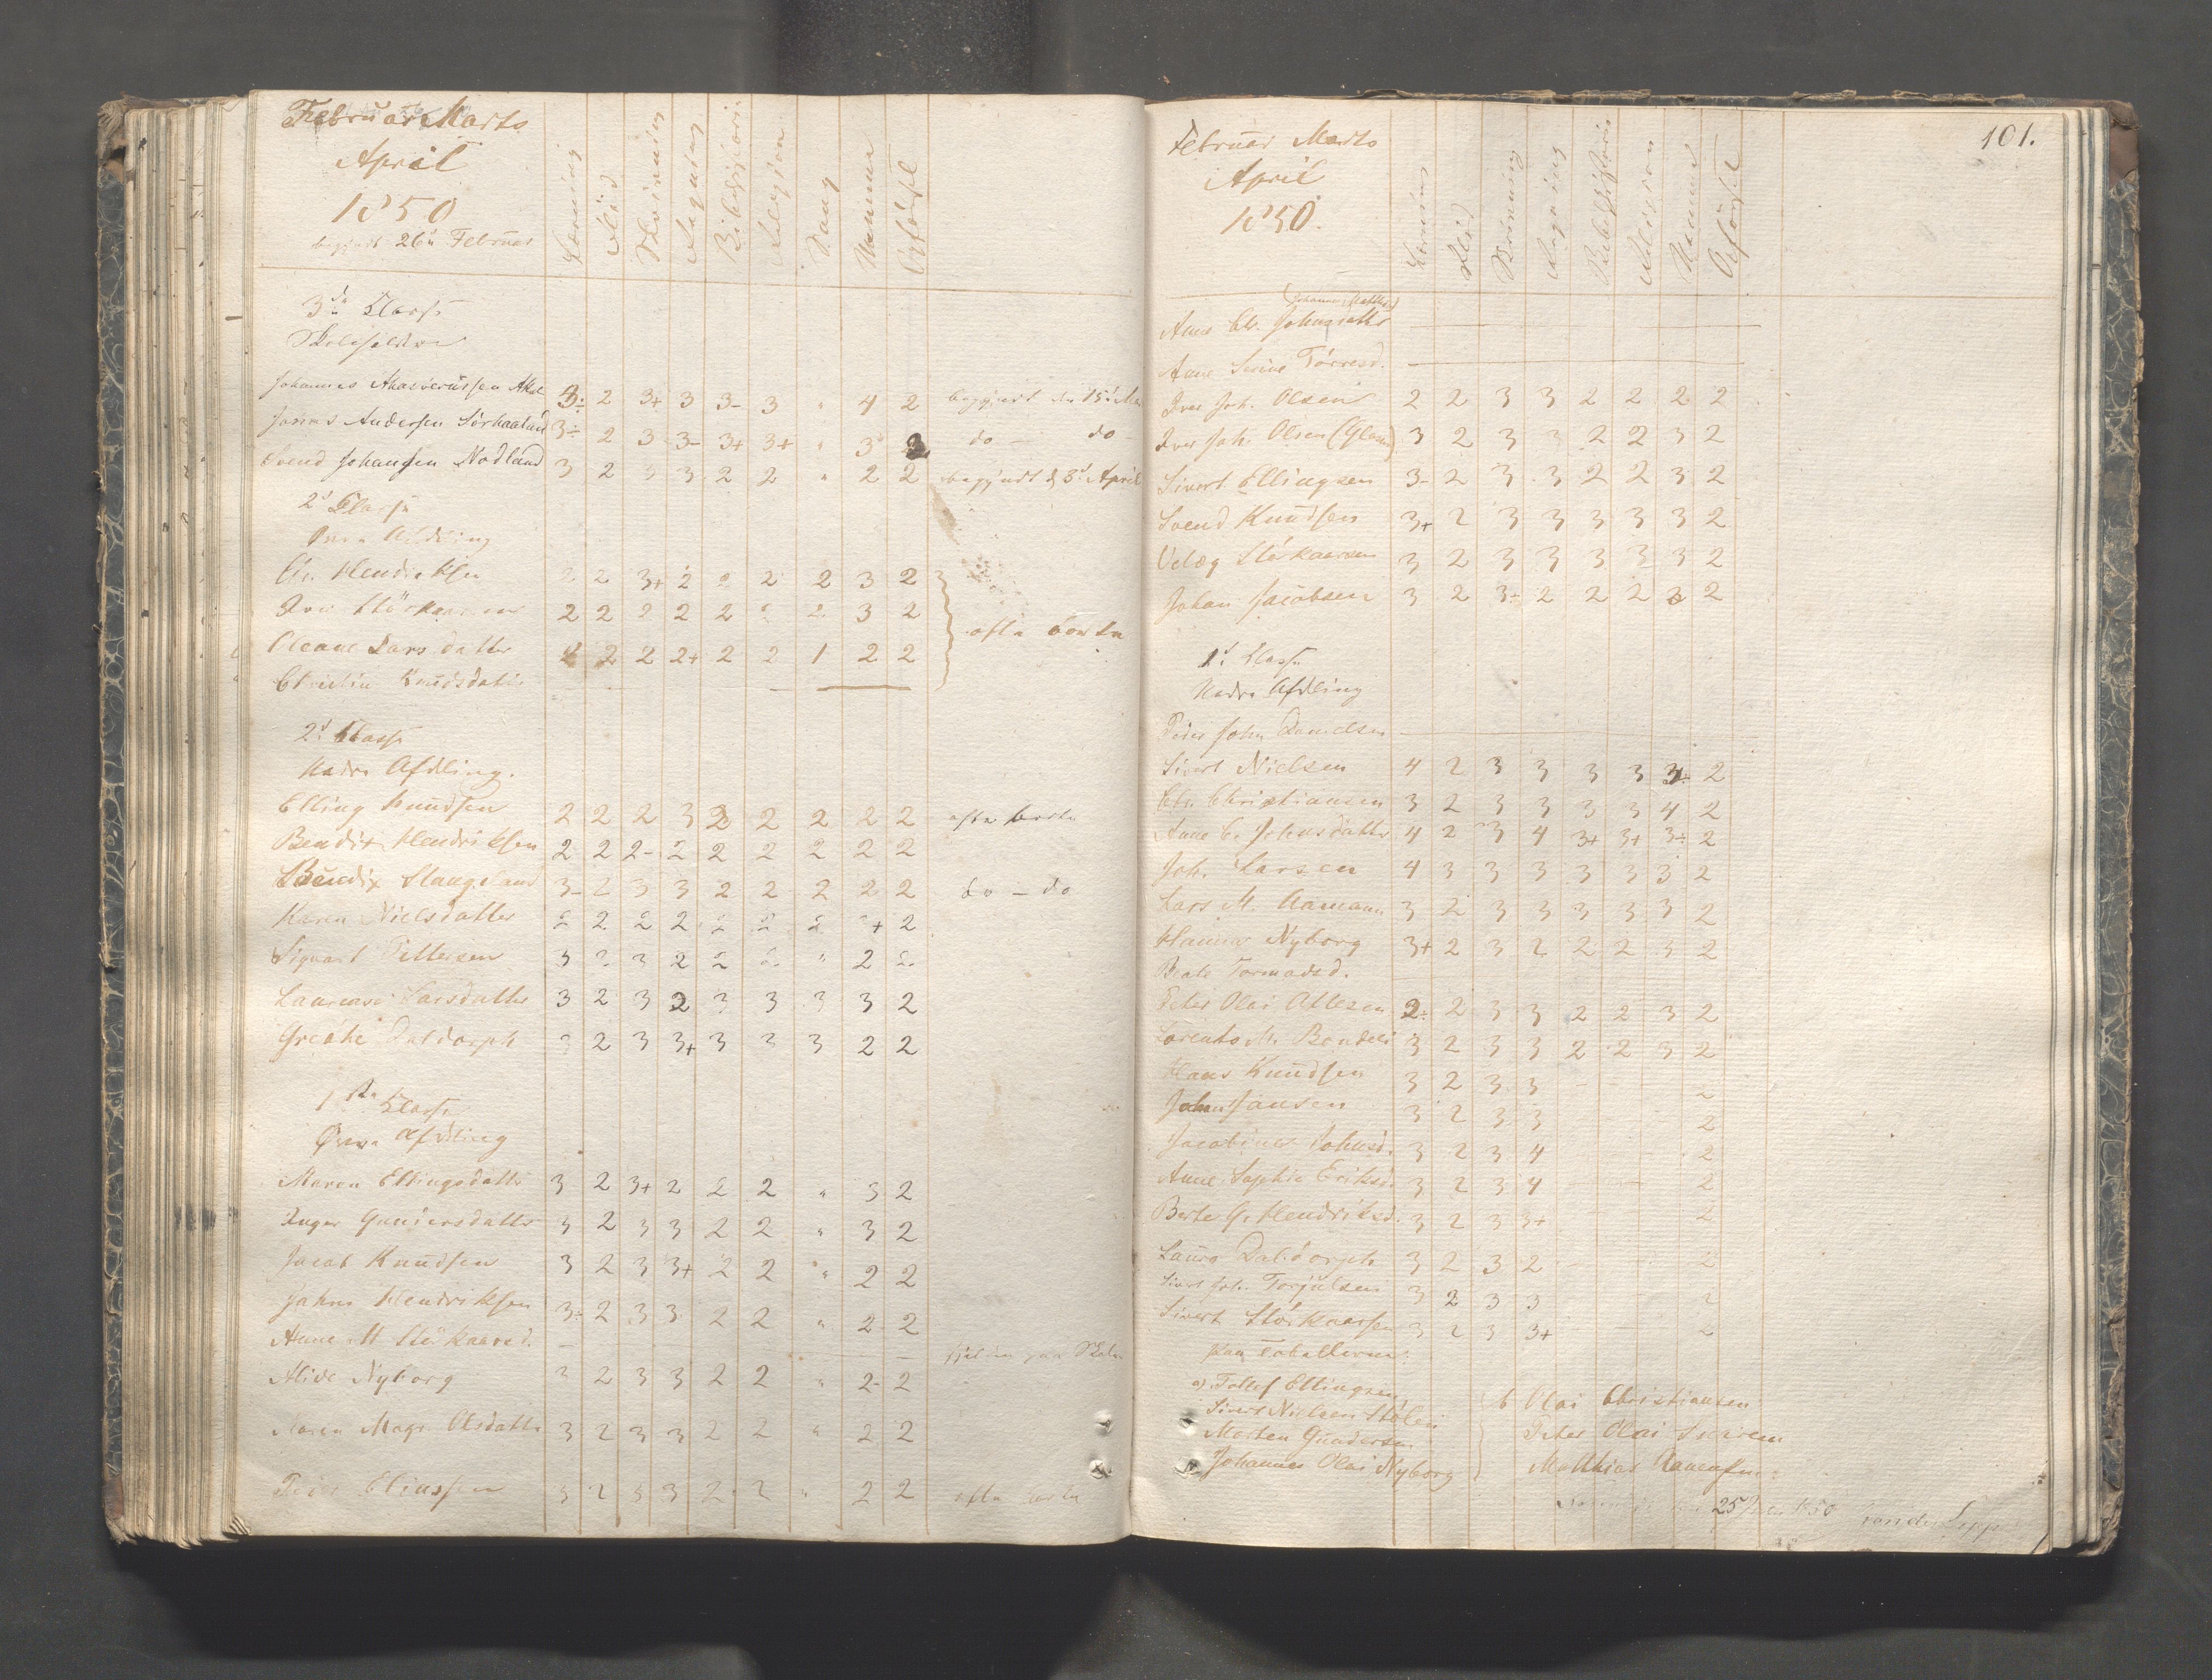 Februar Marts
April
1850
begyndt 26de Februar
Læsning Flid Skrivning Regning Bibelhistorie Religion Sang Opførsel
3die Classe
Johannes Ahasverussen 3÷ 2 3+ 3 3- 3 " 4 2 begyndt den 15de
Jonas Andersen Sørhaaland 3÷ 2 3 3- 3+ 3+ " 3 2 do — do
Svend Johansen Nodland 3 2 3 3 2 2 " 2 2 begyndt d 8de April
2den Classe
Øvre Afdeling
Chr. Hendriksen 2 2 3+ 2 2 2 2 3 2
Iver Störkaarsen 2 2 2 2 2 2 2 3 2
Oleane Larsdatter 2 2 2 2+ 2 2 1 2 2 ofte borte
Christine Knudsdatter
2den Classe
Nedre Afdeling.
Elling Knudsen 2 2 2 3 2 2 2 2 2 ofte borte
Bendix Hendriksen 2 2 2- 2 2 2 2 2 2
Bendix Stangeland 3- 2 3 3 2 2 2 2 2 do — do
Karen Nielsdatter 2 2 2 2 2 2 2 2+ 2
Sigvart Pettersen 3 2 3 2 2 2 " 2 2
Laurense Larsdatter 3 2 3 2 3 3 3 3 2
Greathe Daldorph 3 2 3 3+ 3 3 3 2 2
1ste Classe
Øvre Afdeling
Maren Ellingsdatter 3 2 3+ 2 2 2 " 3 2
Inger Gundersdatter 3 2 3 3 2 2 " 3 2
Jacob Knudsen 3 2 3 3+ 2 2 " 2 2
Johan Hendriksen 3÷ 2 3 3 2 2 " 2 2
Anne M Störkaarsd. — Skolen
Alide Nyborg 3 2 3 3 2 2 " 2- 2
Maren Magr. Olsdatter 3 2 3 3 2 2 " 2 2
Peder Eliassen 3 2 3 3 2 2 " 2 2 ofte borte
101.
Februar Marts
April
1850.
Læsning Flid Skrivning Regning Bibelhistorie Religion Opførsel
Anne Chr. Johnsdatter
Anne Serine Törresd.
Iver Joh. Olsen 2 2 3 3 2 2 2 2
Iver Joh. Olsen 3 2 3 3 2 2 3 2
Sivert Ellingsen 3- 2 3 3 2 2 3 2
Svend Knudsen 3+ 2 3 3 3 3 3 2
Störkaarsen 3 2 3 3 3 3 3 2
Johan Jacobsen 3 2 3- 2 2 2 3 2
1ste Classe
Nedre Afdeling
Peder John Danielsen
Sivert Nielsen 4 2 3 3 3 3 3÷ 2
Chr. Christiansen 3 2 3 3 3 3 4 2
Anne C. Johnsdatter 4 2 3 4 3+ 3+ 3÷ 2
Joh. Larsen 4 3 3 3 3 3 3 2
Lars M. Aamann 3 2 3 3 3 3 3 2
Hanna Nyborg 3+ 2 3 2 2 2 3 2
Beate Tormodsd.
Peter Olai Attesen 2÷ 2 3 3 2 2 3 2
Lorents M. 3 2 3 3 2 2 3 2
Hans Knudsen 3 2 3 3 - - 2
Johan Jansen 3 2 3 3 2
Jacobine Johnsd. 3 2 3 4 2
Anne Sophie Eriksd. 3 2 3 4 2
Berte G. Hendriksd. 3 2 3 3+ 2
Laura Daldorph 3 2 3 2 2
Sivert Joh. Torjulsen 3 2 3 3 2
Sivert Störkaarsen 3 2 3 3+ 2
paa Tabellerne:
a) Tollef Ellingsen
Sivert Nielsen Stölen
Morten Gundersen
Johannes Olai Nyborg
b Olai Christiansen
Peter Olai
Matthias
25 1850